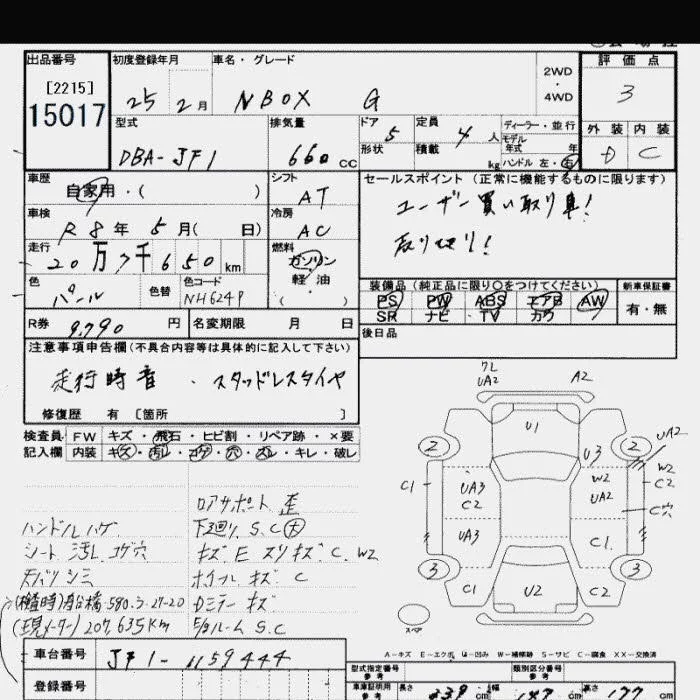 出品番号
[2215]
15017
初度登録年月
25 2月
車名・グレード
NBOX G
2WD
・
4WD
評価点
3
型式
DBA-JF1
排気量
660 CC
ドア 5
形状
定員 4 人
積載 kg
ディーラー・並行
モデル
年式 年
ハンドル 左・右
外装 内装
D C
車歴
自家用・( )
シフト
AT
セールスポイント (正常に機能するものに限ります)
ユーザー買い取り車!
乗り切り!
車検
R8年 5月( 日)
冷房
AC
走行
20万7千650km
燃料
ガソリン
軽・油
( )
色
パール
色替
色コード
NH624P
装備品 (純正品に限り○をつけてください)
PS PW ABS エアB AW
SR ナビ TV カワ
新車保証書
有・無
R券 9,790 円
名変期限 月 日
後日品
注意事項申告欄(不具合内容等は具体的に記入して下さい)
走行時音 . スタッドレスタイヤ
修復歴 有 [箇所 ]
検査員 FW キズ・飛石・ヒビ割・リペア跡・×要
記入欄 内装 キズ・汚れ・コゲ・穴・スレ・キレ・破レ
ハンドルハゲ
シート 汚レ コゲ穴
天バリシミ
(現メーター) 207,635Km
コアサポート 歪
下回り S.C 大
キズ E スリキズ C. W2
ホイール キズ C
Dミラー キズ
E/gルーム S.C
ワレ
UA2
A2
U1
2
2
UA2
U3
W2
C1
UA3
C2
W2
UA2
C2
C穴
UA3
C1
3
3
C1
U2
C2
スペア
A-キズ E-エクボ U-凹み W-補修跡 S-サビ C-腐食 XX-交換済
車台番号
JF1-1159444
登録番号
型式指定番号
参考
類別区分番号
参考
車庫証明用
参考
長さ 339 cm
幅 147 cm
高さ 177 cm